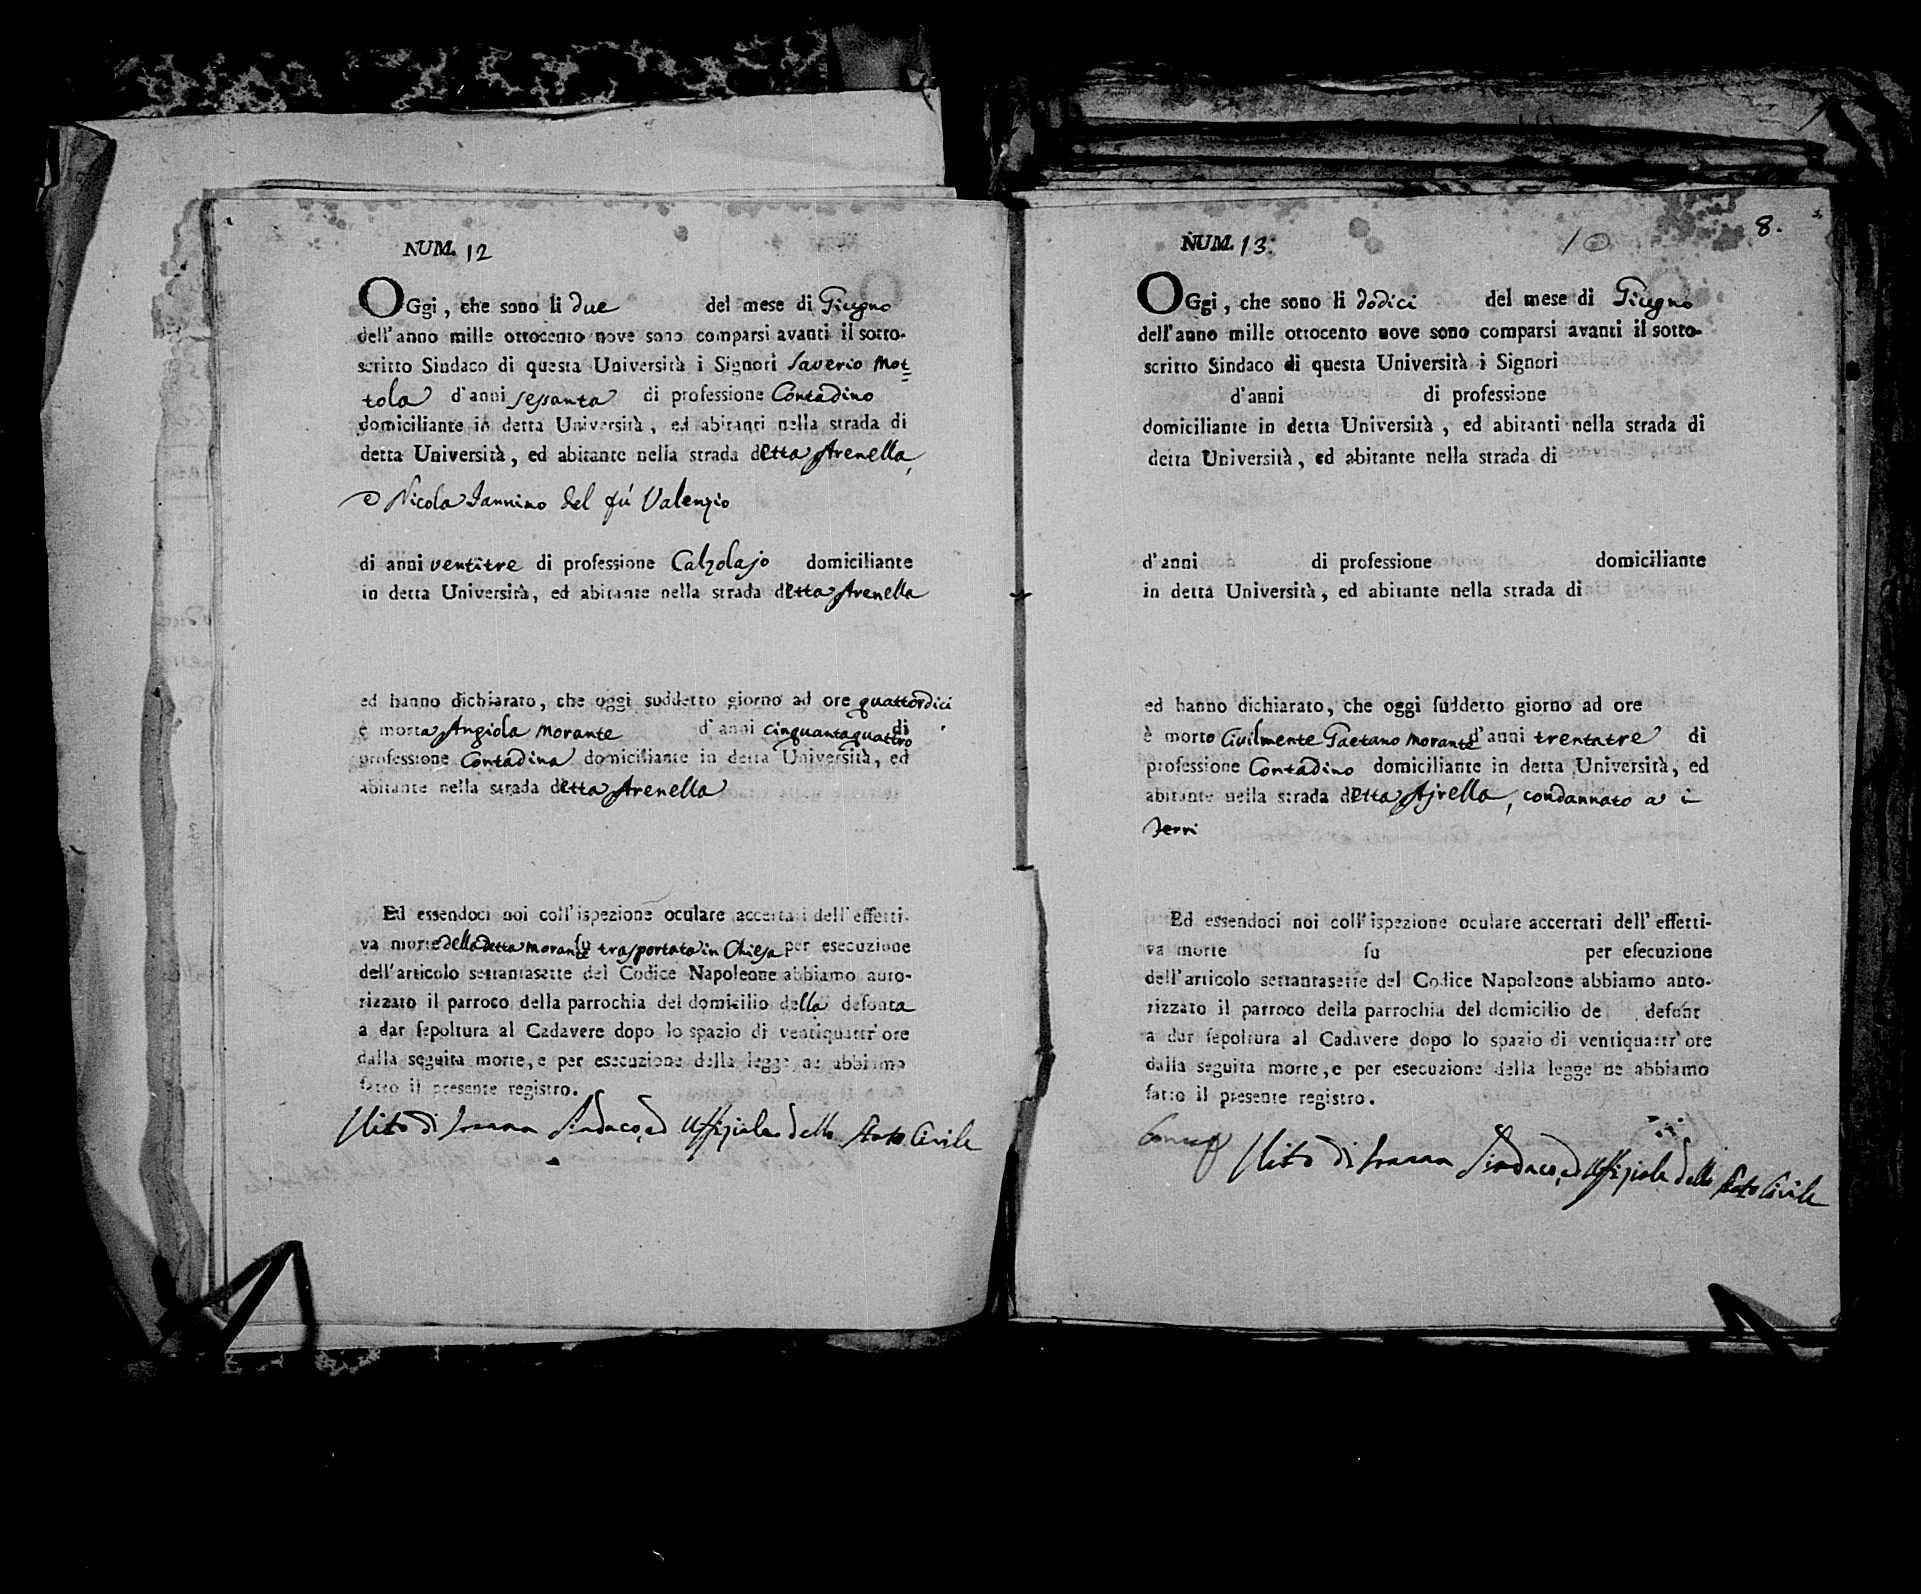 NUM. 12
OGgi, che sono li due del mese di Giugno
dell'anno mille ottocento nove sono comparsi avanti il sotto-
scritto Sindaco di questa Università i Signori Saverio Mot=
tola d'anni sessanta di professione Contadino
domiciliante in detta Università, ed abitanti nella strada di
detta Università, ed abitante nella strada detta Arenella,
e Nicola Iannino del fú Valenzio
di anni ventitre di professione Calzolajo domiciliante
in detta Università, ed abitante nella strada detta Arenella
ed hanno dichiarato, che oggi suddetto giorno ad ore quattordici
è morta Angiola Morante d'anni cinquantaquattro di
professione Contadina domiciliante in detta Università, ed
abitante nella strada detta Arenella
Ed essendoci noi coll'ispezione oculare accertati dell'effetti-
va morte della detta Morante fu trasportata in Chiesa per esecuzione
dell'articolo settantasette del Codice Napoleone abbiamo auto-
rizzato il parroco della parrochia del domicilio della defonta
a dar sepoltura al Cadavere dopo lo spazio di ventiquattr'ore
dalla seguita morte, e per esecuzione della legge ne abbiamo
fatto il presente registro.
Vito di Sindaco, ed Uffiziale dello Stato Civile
NUM. 13.
10
8.
OGgi, che sono li dodici del mese di Giugno
dell'anno mille ottocento nove sono comparsi avanti il sotto-
scritto Sindaco di questa Università i Signori
d'anni di professione
domiciliante in detta Università, ed abitanti nella strada di
detta Università, ed abitante nella strada di
d'anni di professione domiciliante
in detta Università, ed abitante nella strada di
ed hanno dichiarato, che oggi suddetto giorno ad ore
è morto Civilmente Gaetano Morante d'anni trentatre di
professione Contadino domiciliante in detta Università, ed
abitante nella strada detta Ajrella, condannato a i
ferri
Ed essendoci noi coll'ispezione oculare accertati dell'effetti-
va morte fu per esecuzione
dell'articolo settantasette del Codice Napoleone abbiamo auto-
rizzato il parroco della parrochia del domicilio de defont
a dar sepoltura al Cadavere dopo lo spazio di ventiquattr'ore
dalla seguita morte, e per esecuzione della legge ne abbiamo
fatto il presente registro.
Vito di Sindaco, ed Uffiziale dello Stato Civile